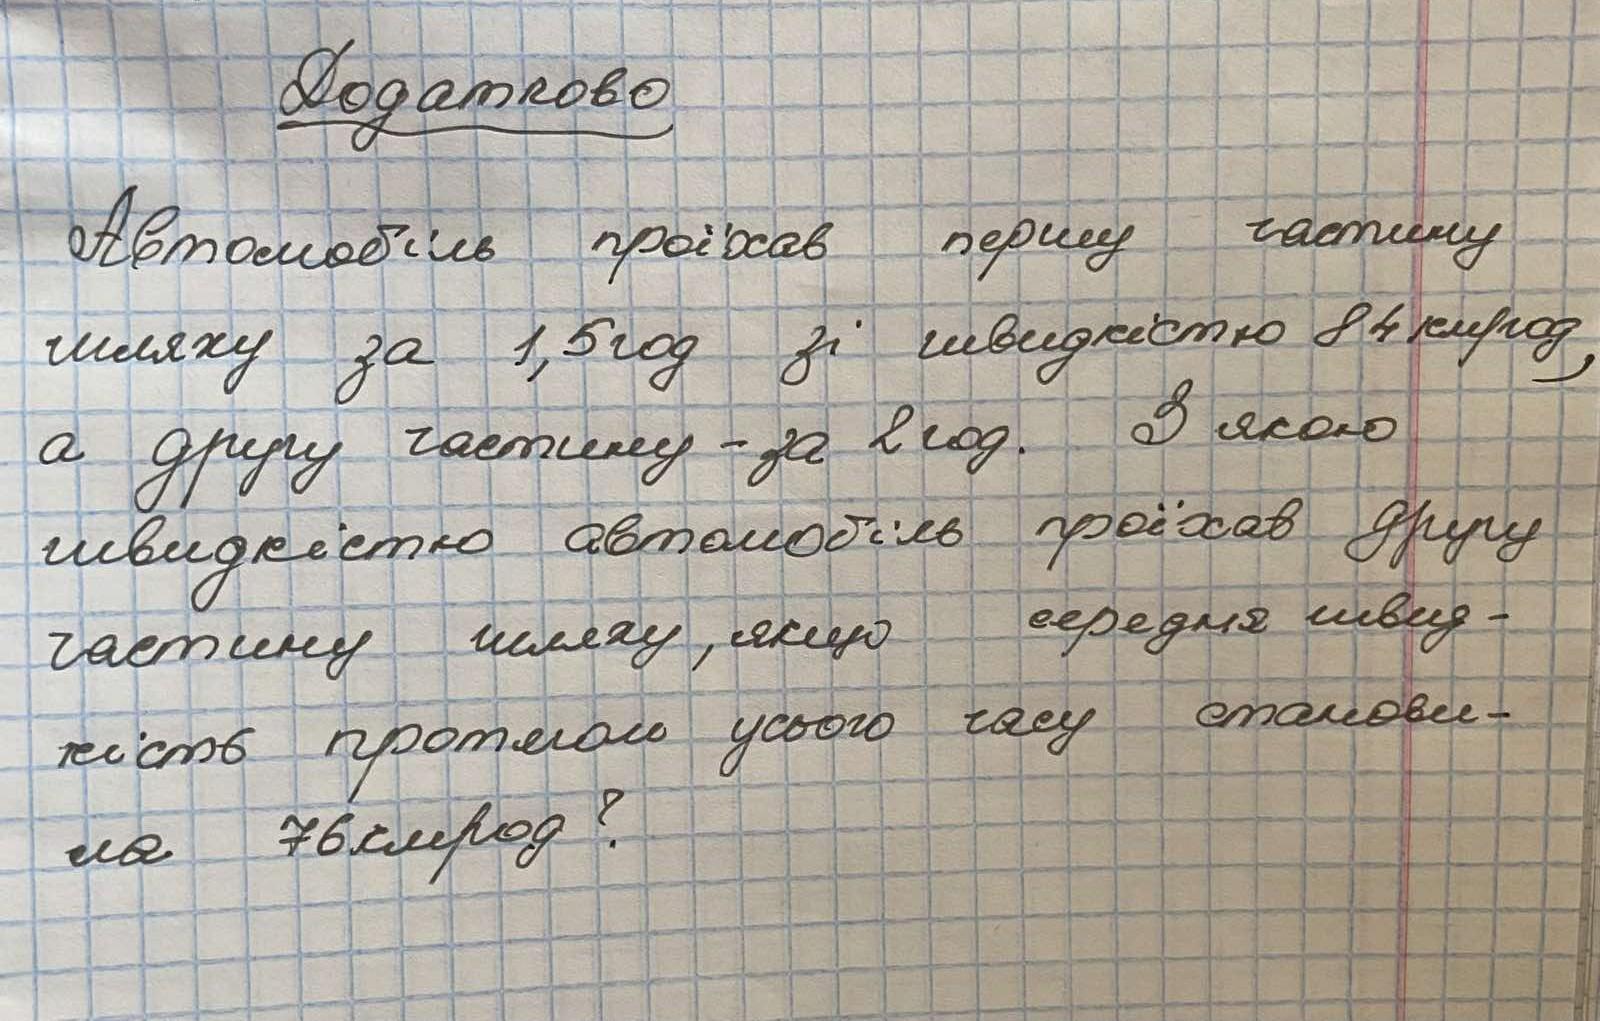 Додатково
Автомобіль проїхав першу частину
шляху за 1,5 год зі швидкістю 84 км/год,
а другу частину - за 2 год. З якою
швидкістю автомобіль проїхав другу
частину шляху, якщо середня швид-
кість протягом усього часу станови-
ла 76 км/год?